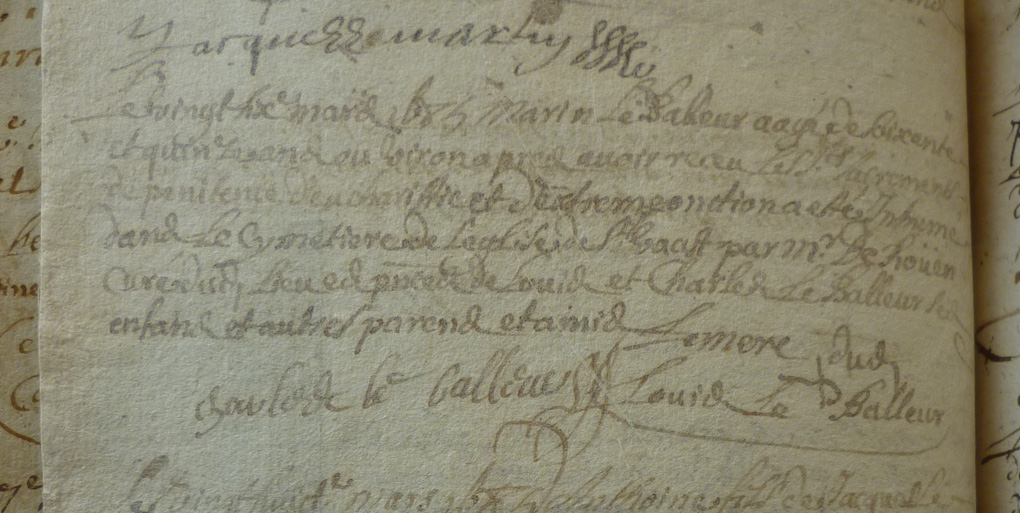 Jacquesse martin
Le vingt sixe mars Marin Le Balleur aagé de soixente
et quinze ans ou viron apres avoir receu les sts sacrements
de penitence d'eucharistie et d'extremeonction a ette Inhumé
dans Le Cymetiere de Leglise de St Vaast par mr De Roüen
Curé dud Lieu es pnces de Louis et Charles Le Balleur ses
enfans et autres parens et amis Lemere
charles le balleur Louis Le Balleur
Le vingthuicte mars Anthoine fils de Jacques Le